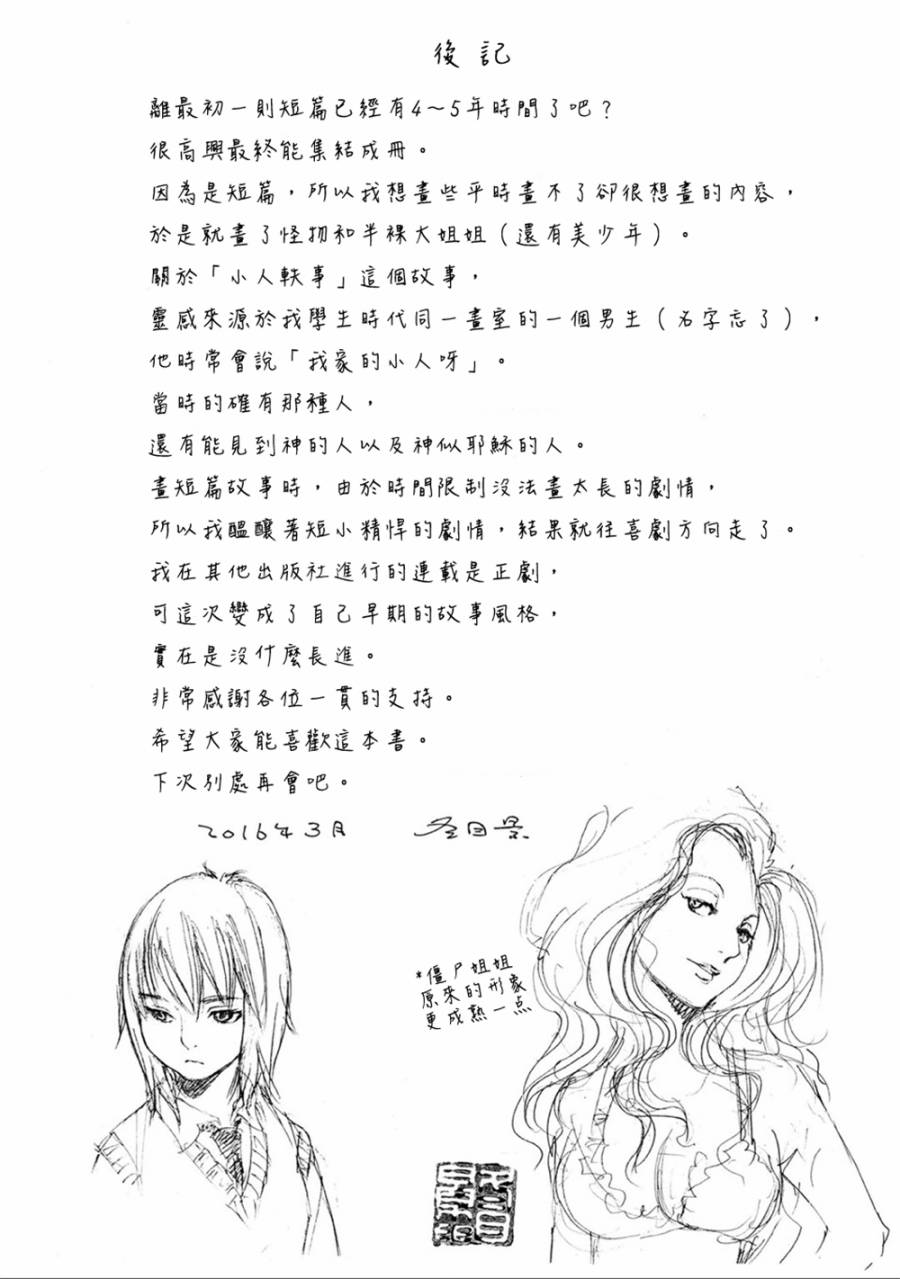 後記
離最初一則短篇已經有4～5年時間了吧？
很高興最終能集結成冊。
因為是短篇，所以我想畫些平時畫不了卻很想畫的內容，
於是就畫了怪物和半裸大姐姐（還有美少年）。
關於「小人軼事」這個故事，
靈感來源於我學生時代同一畫室的一個男生（名字忘了），
他時常會說「我家的小人呀」。
當時的確有那種人，
還有能見到神的人以及神似耶穌的人。
畫短篇故事時，由於時間限制沒法畫太長的劇情，
所以我醞釀著短小精悍的劇情，結果就往喜劇方向走了。
我在其他出版社進行的連載是正劇，
可這次變成了自己早期的故事風格，
實在是沒什麼長進。
非常感謝各位一貫的支持。
希望大家能喜歡這本書。
下次別處再會吧。
2016年3月 冬目景
*僵尸姐姐
原來的形象
更成熟一点